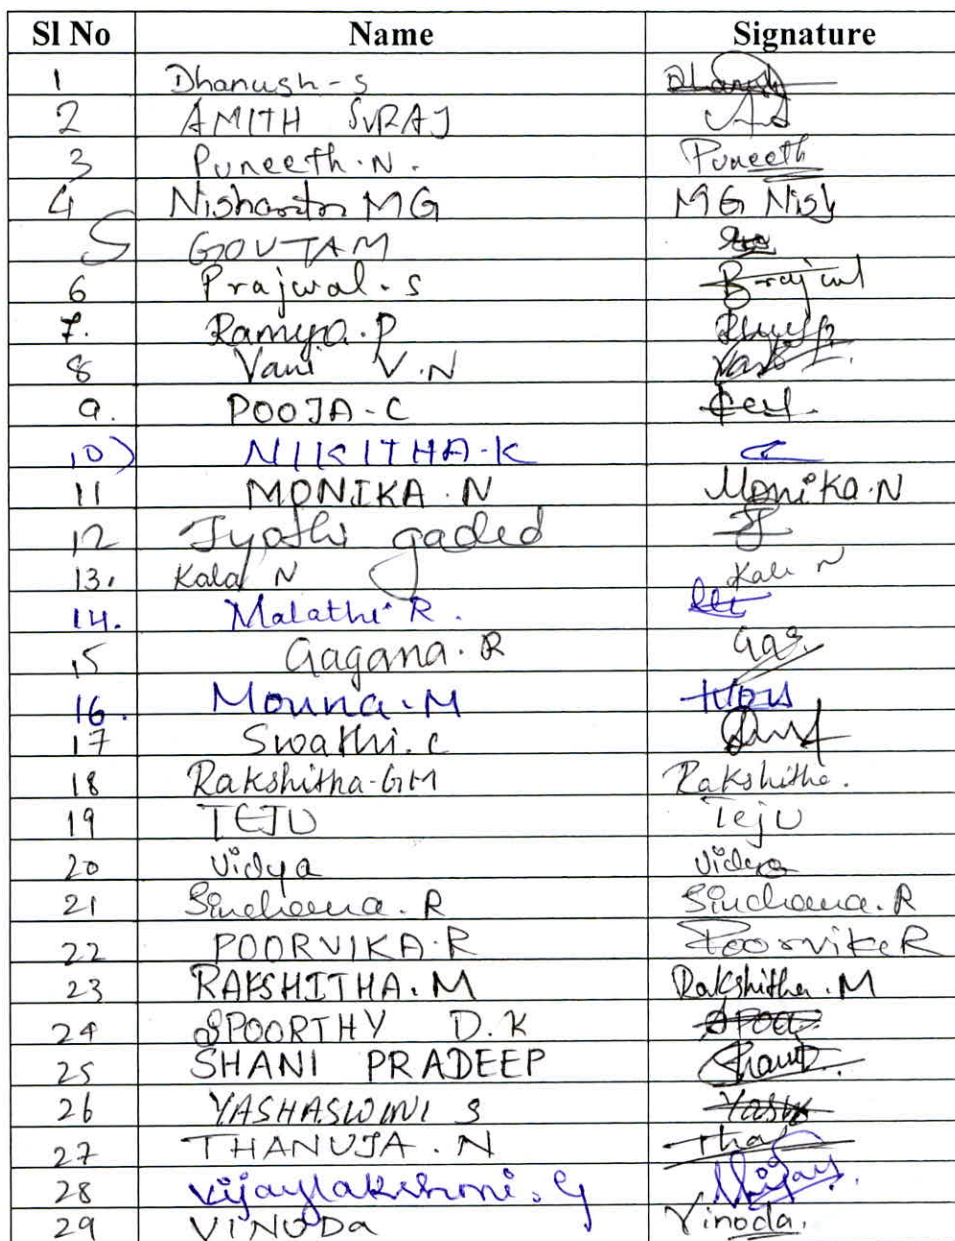 Sl No Name Signature
1 Dhanush-S
2 AMITH SURAJ
3 Puneeth.N. Puneeth
4 Nishanth MG MG Nish
5 GOUTAM
6 Prajwal.S Prajwal
7. Ramya.P
8 Vani V.N
9. POOJA-C
10) NIKITHA-K
11 MONIKA.N Monika.N
12 Jyothi gaded
13. Kala N Kala N
14. Malathi R.
15 Gagana.R Gag
16. Mouna.M
17 Swathi.C
18 Rakshitha-GM Rakshitha.
19 TEJU TejU
20 Vidya Vidya
21 Sinchana.R Sinchana.R
22 POORVIKA.R Poorvika R
23 RAKSHITHA.M Rakshitha.M
24 SPOORTHY D.K
25 SHANI PRADEEP
26 YASHASWINI S
27 THANUJA.N Tha
28 Vijaylakshmi.G
29 VINODa Vinoda.